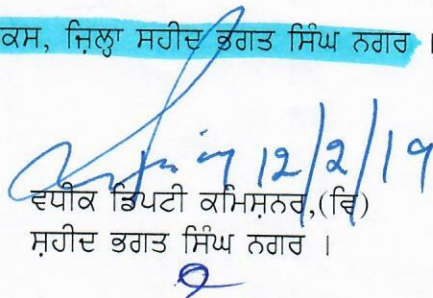 ਕਸ, ਜ਼ਿਲ੍ਹਾ ਸਹੀਦ ਭਗਤ ਸਿੰਘ ਨਗਰ ।
12/2/19
ਵਧੀਕ ਡਿਪਟੀ ਕਮਿਸ਼ਨਰ,(ਵਿ)
ਸ਼ਹੀਦ ਭਗਤ ਸਿੰਘ ਨਗਰ ।